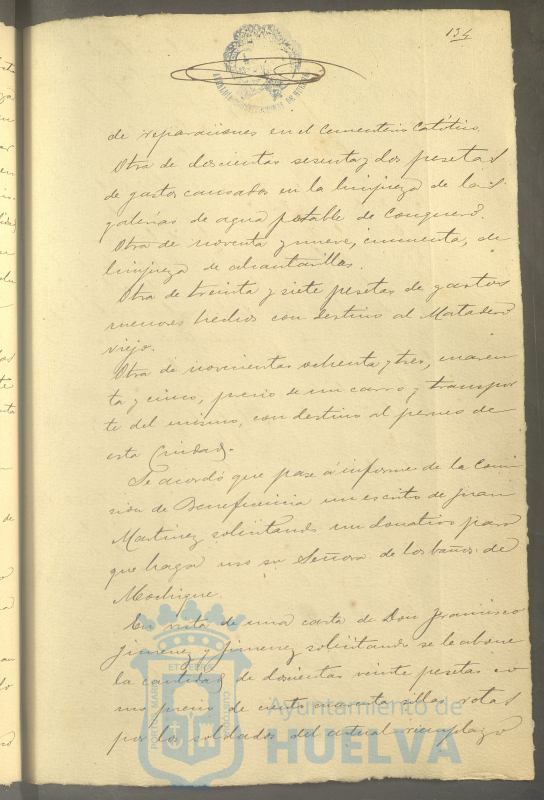 134
de reparaciones en el Cementerio Católico.
Otra de doscientas sesenta y dos pesetas
de gastos causados en la limpieza de las
galerias de agua potable de Conquero.
Otra de noventa y nueve, cincuenta, de
limpieza de alcantarillas.
Otra de treinta y siete pesetas de gastos
menores hechos con destino al Matadero
viejo.
Otra de novecientas ochenta y tres, cuaren
ta y cinco, precio de un carro y transpor
te del mismo, con destino al perneo de
esta Ciudad.
Se acordó que pase á informe de la Comi
sion de Beneficencia un escrito de Juan
Martinez solicitando un donativo para
que haga uso su Señora de los baños de
En vista de una carta de Don Francisco
Jimenez y Jimenez solicitando se le abone
la cantidad de doscientas veinte pesetas co
mo precio de ciento cuarenta sillas rotas
por los soldados del actual reemplazo
Ayuntamiento de
HUELVA